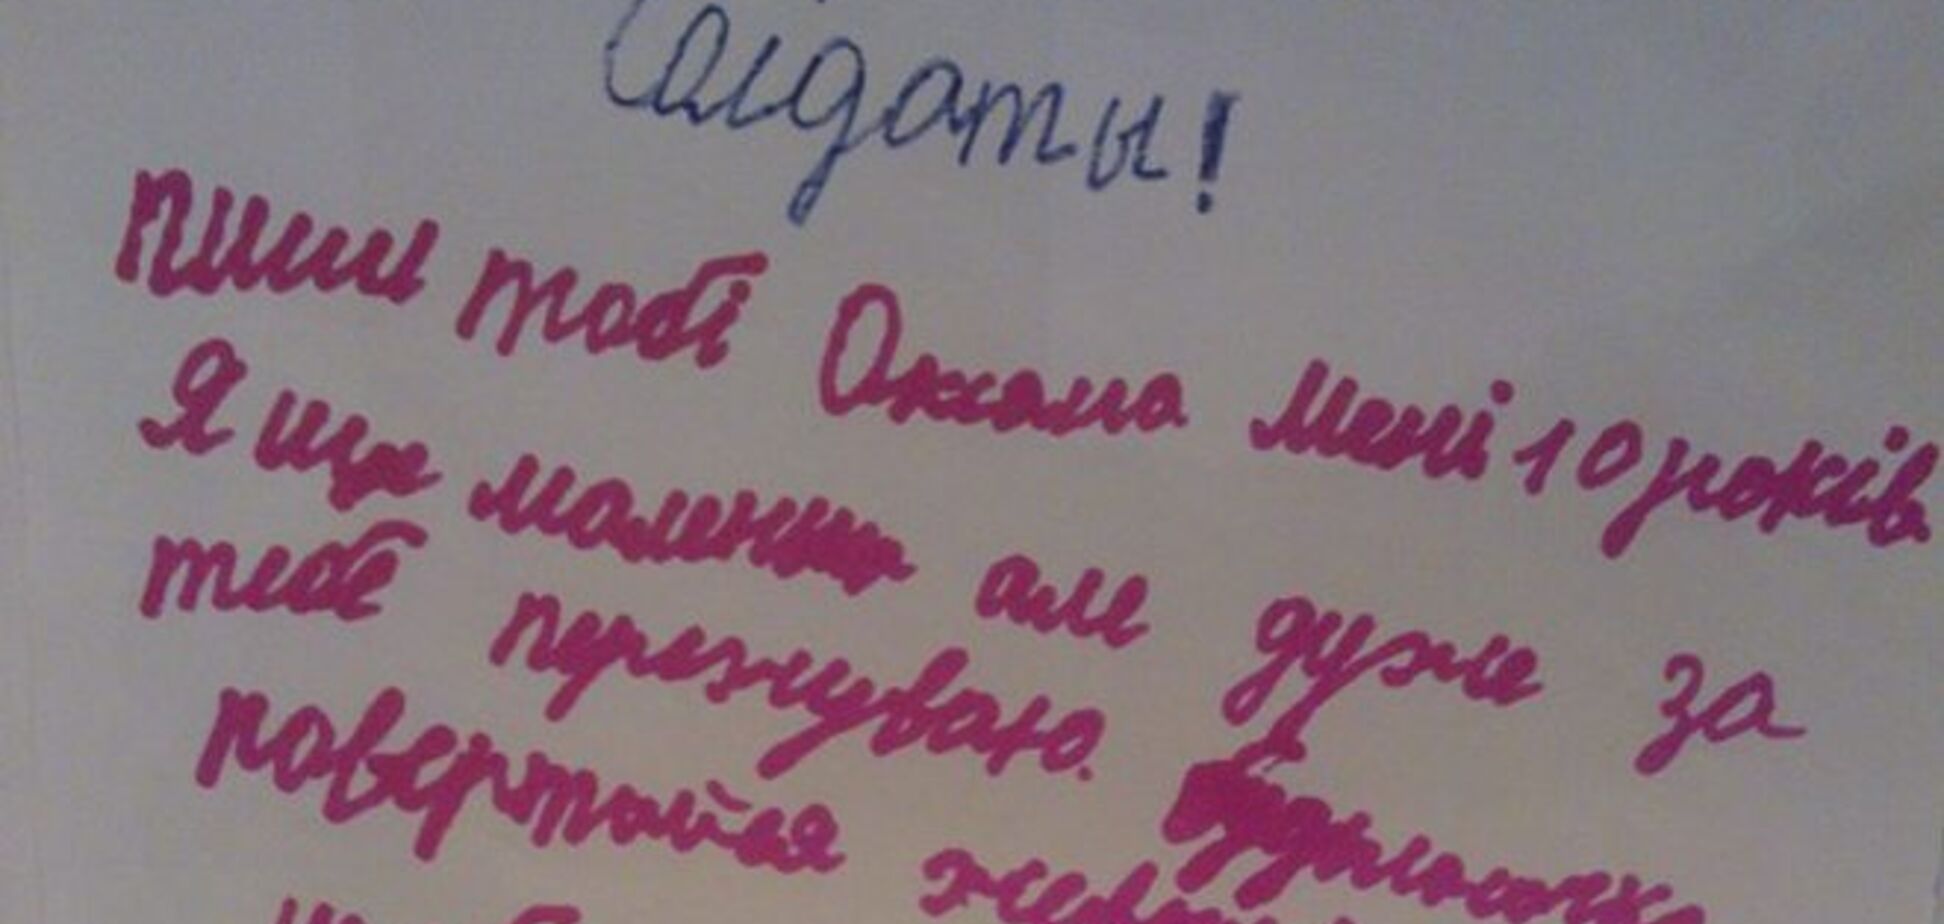 Салдаты!
пиши тобі Оксана Мені 10 років
Я ще маленька але дуже за
тебе переживаю. Будьласочка
повертайся живим